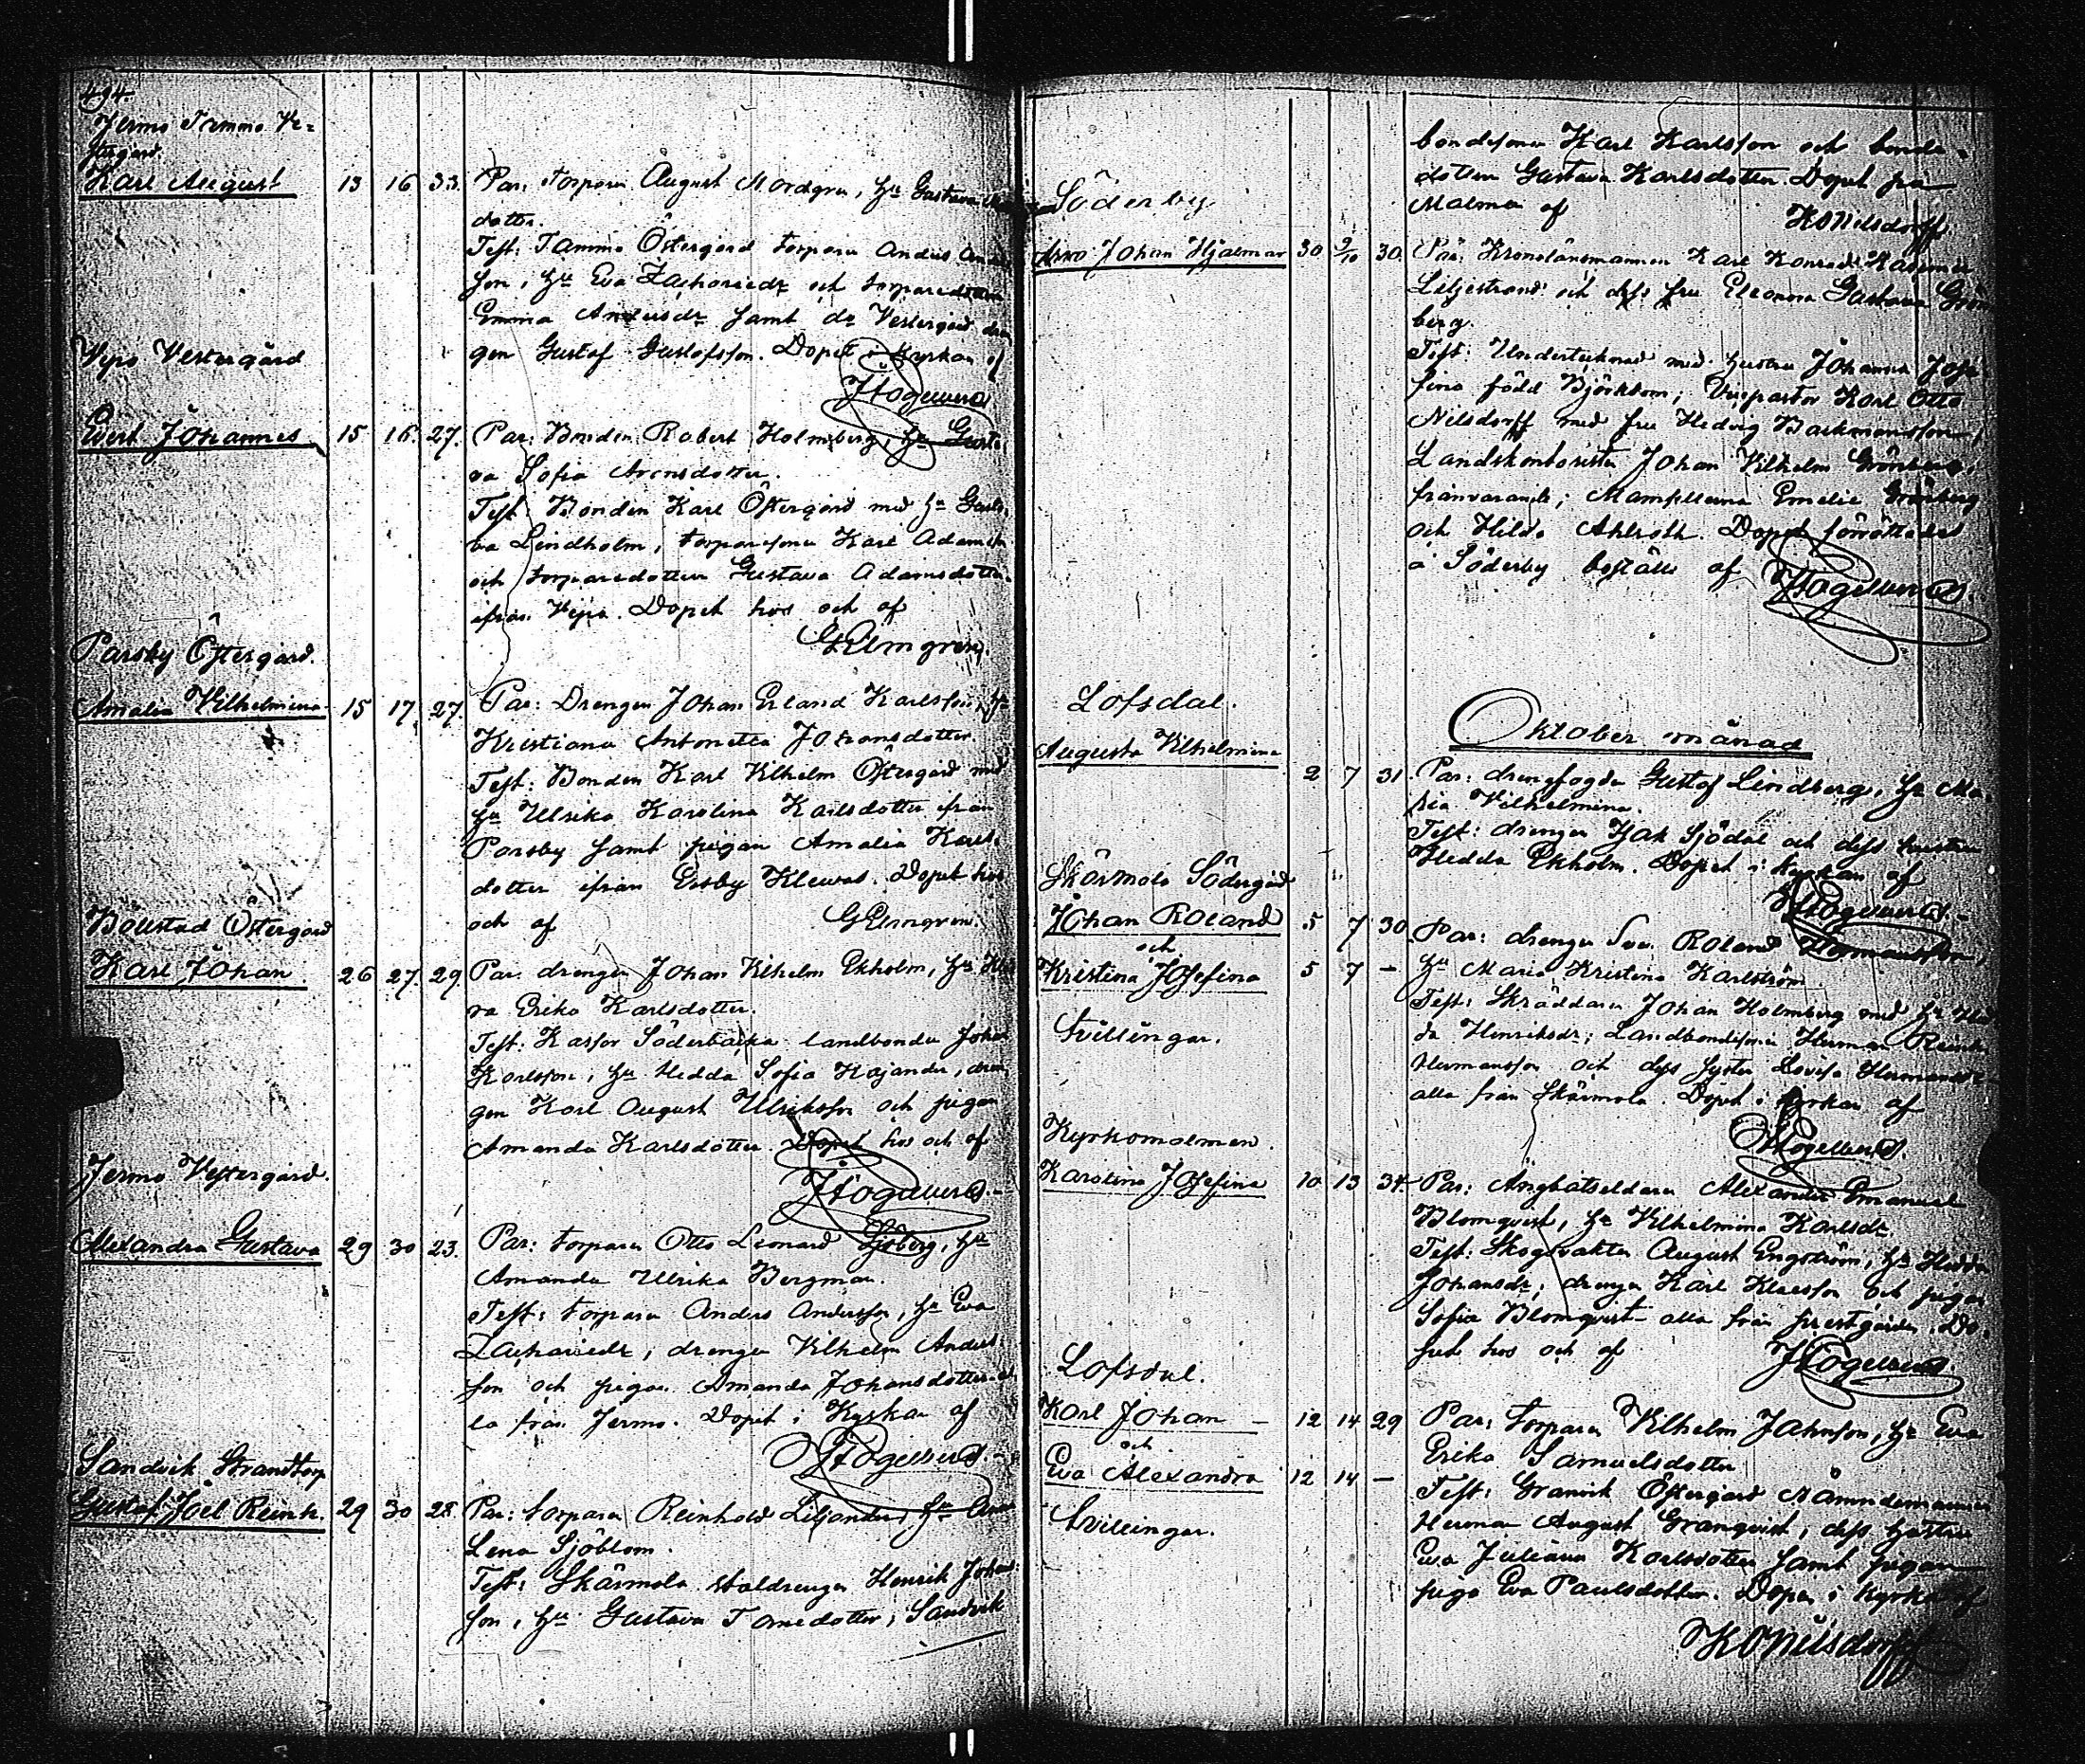 494.
Jermo Tammo Ve-
stergård.
Karl August 13 16 33. Par: torparen August Nordgren, hu Gustava
dotter.
Test: Tammo Östergård torparen Anders An
son, hu Eva Zachariedr och torparedottren
Emma Andersdr samt do Vestergård drän
gen Gustaf Gustafsson. Döpet i kyrkan af
JHögelberg
Vepo Vestergård
Evert Johannes 15 16. 27. Par: Bonden Robert Holmberg, hu Gusta
va Sofia Arensdotter.
Test: Bonden Karl Östergård med hu Gusta
va Lindholm, torparesonen Karl Adamsson
och torparedottren Gustava Adamsdotter
ifrån Vepo. Döpet hos och af
GElmgren.
Parsby Östergård.
Amalia Vilhelmina 15 17. 27. Par: Drengen Johan Erland Karlsson, hu
Kristiana Antonetta Johansdotter.
Test: Bonden Karl Vilhelm Östergård med
hu Ulrika Karolina Karlsdotter ifrån
Parsby samt pigan Amalia Karls
dotter ifrån Ersby Klewas. Döpet hos
och af GElmgren.
Bollstad Östergård
Karl Johan 26 27. 29. Par. drengen Johan Vilhelm Ekholm, hu
va Erika Karlsdotter.
Test: Kassor Söderbacka landbonden Johan
Karlsson, hu Hedda Sofia Kajander, drän
gen Karl August Ulriksson och pigan
Amanda Karlsdotter. Döpet hos och af
JHögelberg.
Jermo Vestergård.
Alexandra Gustava 29 30 23. Par: torparen Otto Leonard Sjöberg, hu
Amanda Ulrika Bergman.
Test: torparen Anders Andersson, hu Eva
Zachariedr, drengen Vilhelm Anders
son och pigan Amanda Johansdotter al
la från Jermo. Döpet i Kyrkan af
JHögelberg.
Sandvik Strandtorp
Gustaf Joel Reinh. 29 30 28. Par: torparen Reinhold Liljander, hu Anna
Lena Sjöblom.
Test: Skärmola staldrengen Henrik Johans
son, hu Gustava Tomsdotter, Sandvik
bondesonen Karl Karlsson och bonde-
dottren Gustava Karlsdotter. Döpet på
Malmen af KONilsdorff
Söderby.
Arvo Johan Hjalmar 30 9/10 30. Par: Kronolänsmannen Karl Konrad Kasimir
Liljestrand och dess fru Eleonora Gustava Grön
berg.
Test: Undertecknad med hustru Johanna Jose
fina född Björkbom; Vicepastor Karl Otto
Nilsdorff med fru Hedvig Backmansson,
Landskontoristen Johan Vilhelm Grönberg,
frånvarande; Mamsellerna Emelie Grönberg
och Hilda Ahlroth. Döpet förrättades
å Söderby boställe af JHögelberg
Oktober månad
Lofsdal.
Augusta Vilhelmina 2 7 31. Par: drengfogden Gustaf Lindberg, hu Ma-
ria Vilhelmina.
Test: drengen Isak Sjödal och dess hustru
Hedda Ekholm. Döpet i kyrkan af
JHögelberg.
Skärmola Södergård
Johan Roland 5 7 30 Par: drengen Sven Roland Hermansson,
och
Kristina Josefina 5 7 — hu Maria Kristina Karlström.
Tvillingar.
Test: Skräddaren Johan Holmberg med hu Hed
da Henriksdr; Landbondesonen Herman Reinh.
Hermansson och dess syster Lovisa Hermansdr
alla från Skärmola. Döpet i kyrkan af
JHögelberg.
Kyrkomalmen.
Karolina Josefina 10 13 34. Par: Ångbåtseldaren Alexander Emanuel
Blomqvist, hu Vilhelmina Karlsdr.
Test: Skogsvakten August Engström, hu Hedda
Johansdr; drengen Karl Klaesson och pigan
Sofia Blomqvist alla från prestgården. Dö-
pet hos och af JHögelberg
Lofsdal.
Karl Johan — 12 14 29 Par: torparen Vilhelm Jahnson, hu Eva
och
Erika Samuelsdotter
Eva Alexandra 12 14 —
Tvillingar.
Test: Granvik Östergård Nämndemannen
Herman August Granqvist, dess hustru
Eva Juliana Karlsdotter samt pigan
piga Eva Paulsdotter. Döpet i kyrkan af
KONilsdorff